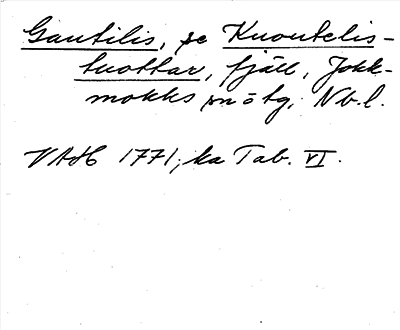 Gautilis, se Kuoutelis-
tuottar, fjäll, Jokk-
mokks sn ö tg, Nb.l.
VAH 1771, ka Tab. VI.